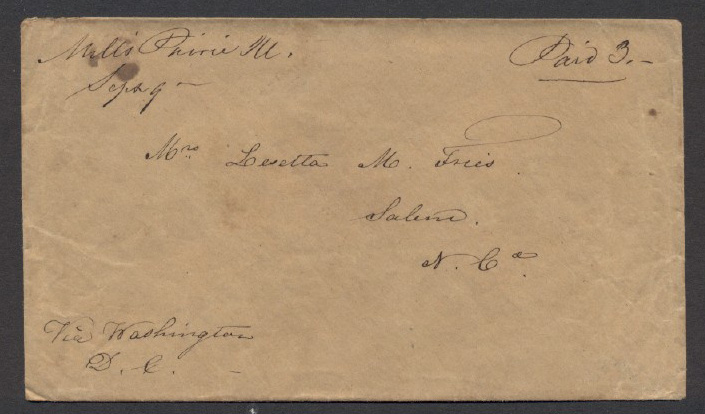 Mills Pairie Ill.
Sept 9 –
Paid 3. –
Mrs Lesetta M. Fries.
Salem.
N. Ca
Via Washington
D. C. –